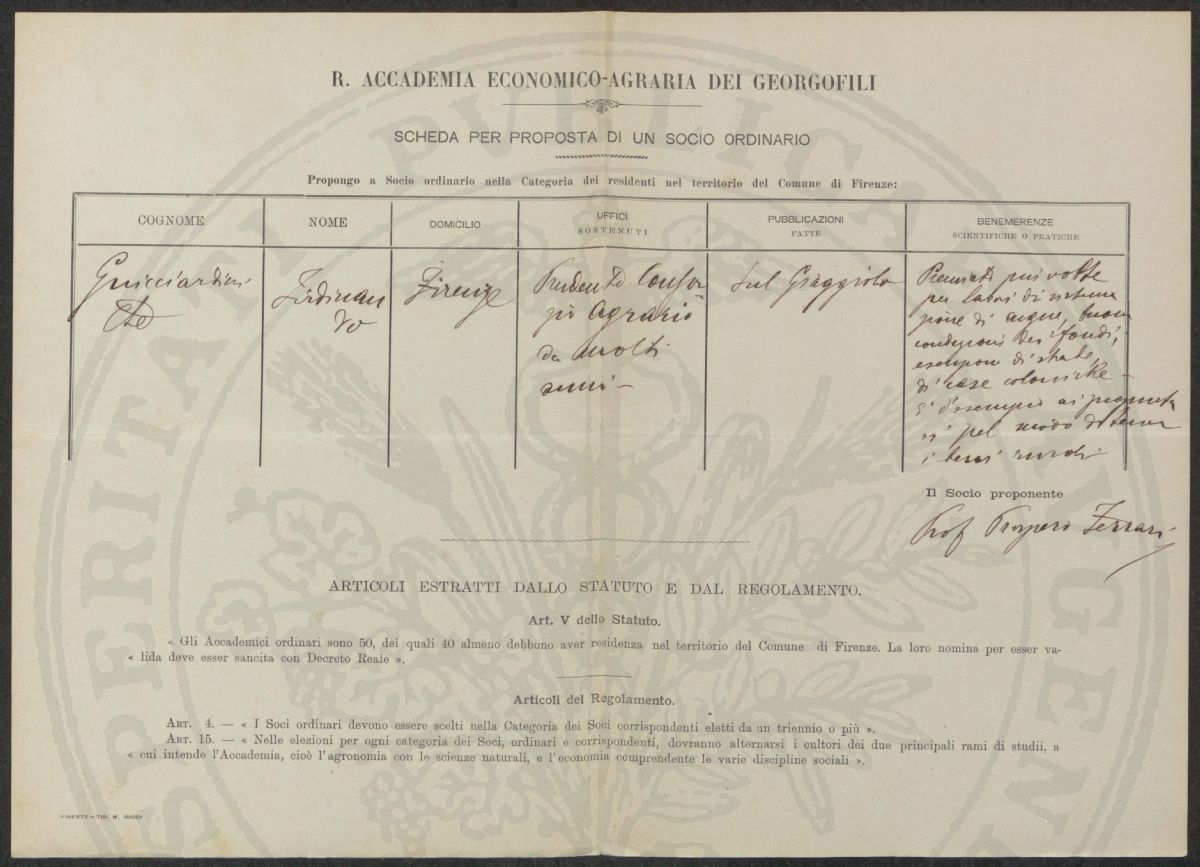 R. ACCADEMIA ECONOMICO-AGRARIA DEI GEORGOFILI
SCHEDA PER PROPOSTA DI UN SOCIO ORDINARIO
Propongo a Socio ordinario nella Categoria dei residenti nel territorio del Comune di Firenze:
COGNOME
NOME
DOMICILIO
UFFICI
SOSTENUTI
PUBBLICAZIONI
FATTE
BENEMERENZE
SCIENTIFICHE O PRATICHE
Guicciardini
Ferdinan
do
Firenze
Presidente Consor
zio Agrario
da molti
anni –
Sul Giaggiolo
Premiato più volte
per lavori di sistema
zione di acque, buone
condizioni dei fondi,
di strade,
di case coloniche –
È d'esempio ai proprieta
ri pel modo di tener
i beni rurali
Il Socio proponente
Prof Prospero Ferrari
ARTICOLI ESTRATTI DALLO STATUTO E DAL REGOLAMENTO.
Art. V dello Statuto.
« Gli Accademici ordinari sono 50, dei quali 40 almeno debbono aver residenza nel territorio del Comune di Firenze. La loro nomina per esser va-
« lida deve esser sancita con Decreto Reale ».
Articoli del Regolamento.
ART. 4. — « I Soci ordinari devono essere scelti nella Categoria dei Soci corrispondenti eletti da un triennio o più ».
ART. 15. — « Nelle elezioni per ogni categoria dei Soci, ordinari e corrispondenti, dovranno alternarsi i cultori dei due principali rami di studii, a
« cui intende l'Accademia, cioè l'agronomia con le scienze naturali, e l'economia comprendente le varie discipline sociali ».
FIRENZE — TIP. M. RICCI